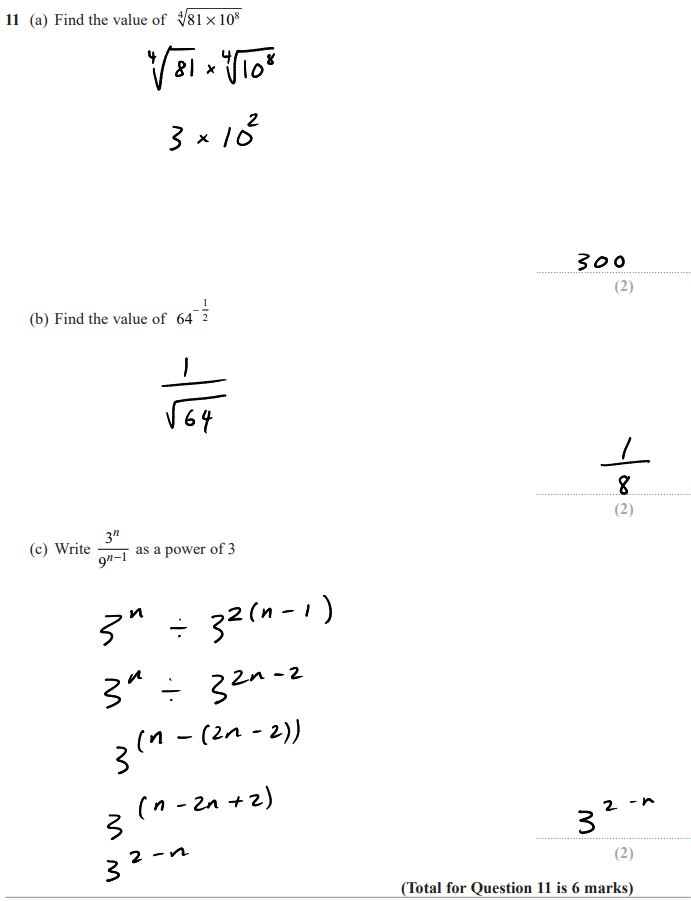 11 (a) Find the value of ⁴√(81 × 10⁸)
⁴√81 × ⁴√10⁸
3 × 10²
300
(2)
(b) Find the value of 64^(-1/2)
1/√64
1/8
(2)
(c) Write 3ⁿ/9ⁿ⁻¹ as a power of 3
3ⁿ ÷ 3^2(n - 1)
3ⁿ ÷ 3^2n - 2
3^(n - (2n - 2))
3^(n - 2n + 2)
3^2 - n
3^2 - n
(2)
(Total for Question 11 is 6 marks)